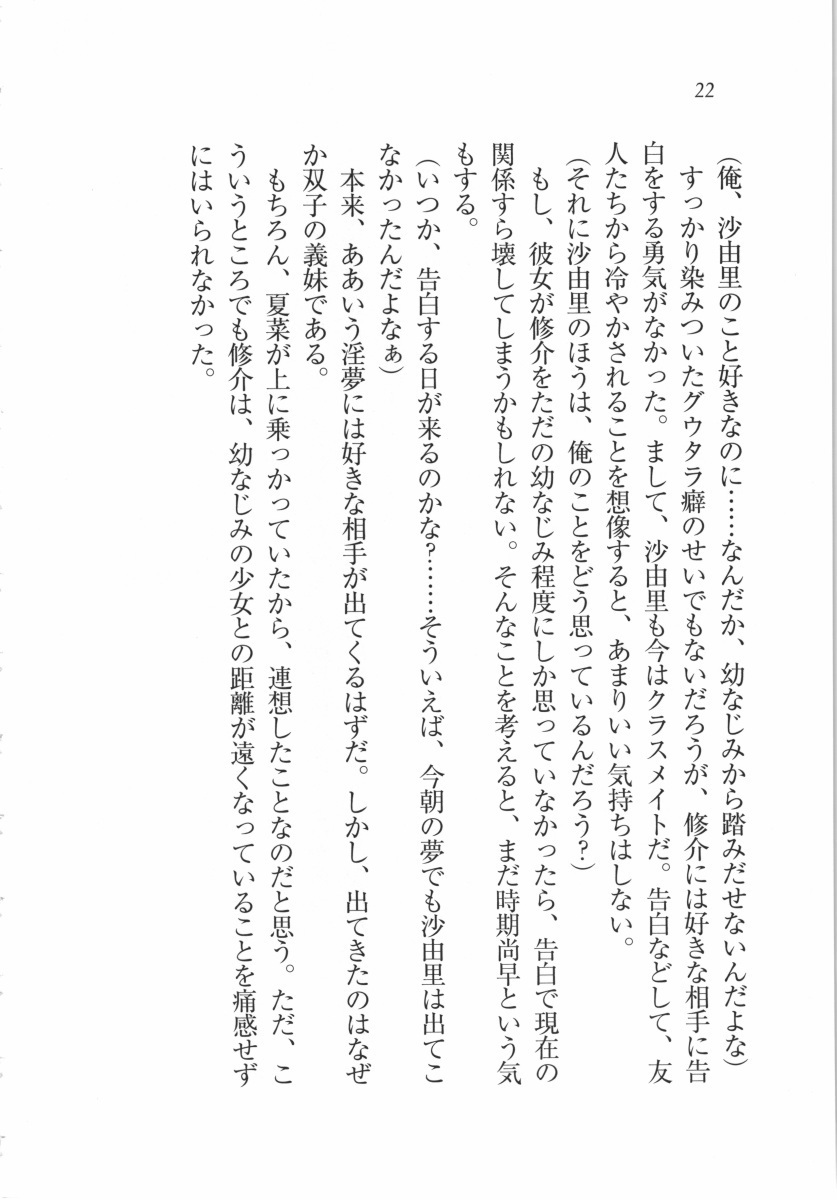 22
(俺、沙由里のこと好きなのに……なんだか、幼なじみから踏みだせないんだよな)
すっかり染みついたグウタラ癖のせいでもないだろうが、修介には好きな相手に告
白をする勇気がなかった。まして、沙由里も今はクラスメイトだ。告白などして、友
人たちから冷やかされることを想像すると、あまりいい気持ちはしない。
(それに沙由里のほうは、俺のことをどう思っているんだろう?)
もし、彼女が修介をただの幼なじみ程度にしか思っていなかったら、告白で現在の
関係すら壊してしまうかもしれない。そんなことを考えると、まだ時期尚早という気
もする。
(いつか、告白する日が来るのかな?……そういえば、今朝の夢でも沙由里は出てこ
なかったんだよなぁ)
本来、ああいう淫夢には好きな相手が出てくるはずだ。しかし、出てきたのはなぜ
か双子の義妹である。
もちろん、夏菜が上に乗っかっていたから、連想したことなのだと思う。ただ、こ
ういうところでも修介は、幼なじみの少女との距離が遠くなっていることを痛感せず
にはいられなかった。